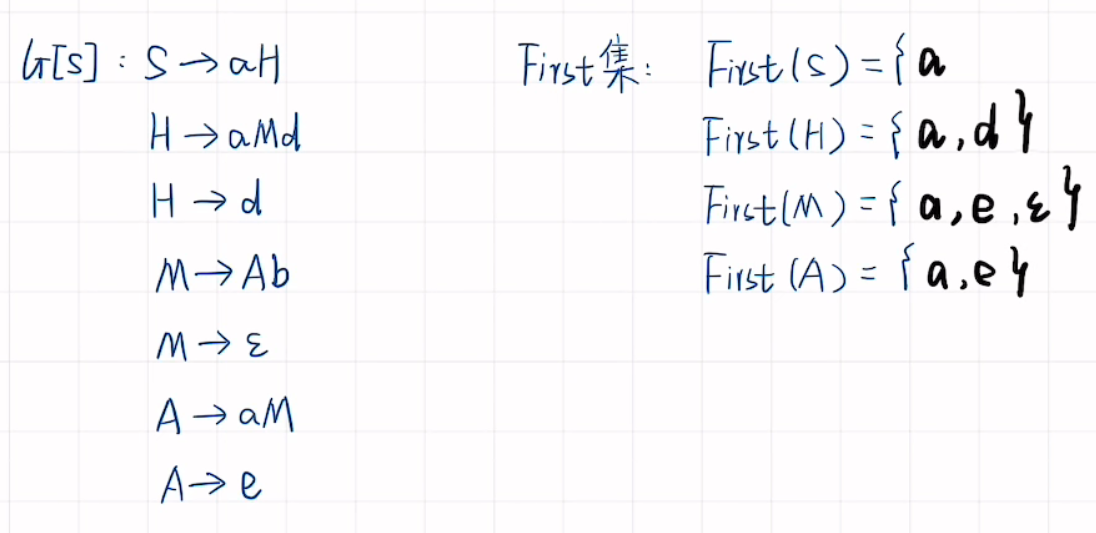 G[S] : S → aH
H → aMd
H → d
M → Ab
M → ε
A → aM
A → e
First集: First(S) = { a
First(H) = { a, d }
First(M) = { a, e, ε }
First(A) = { a, e }